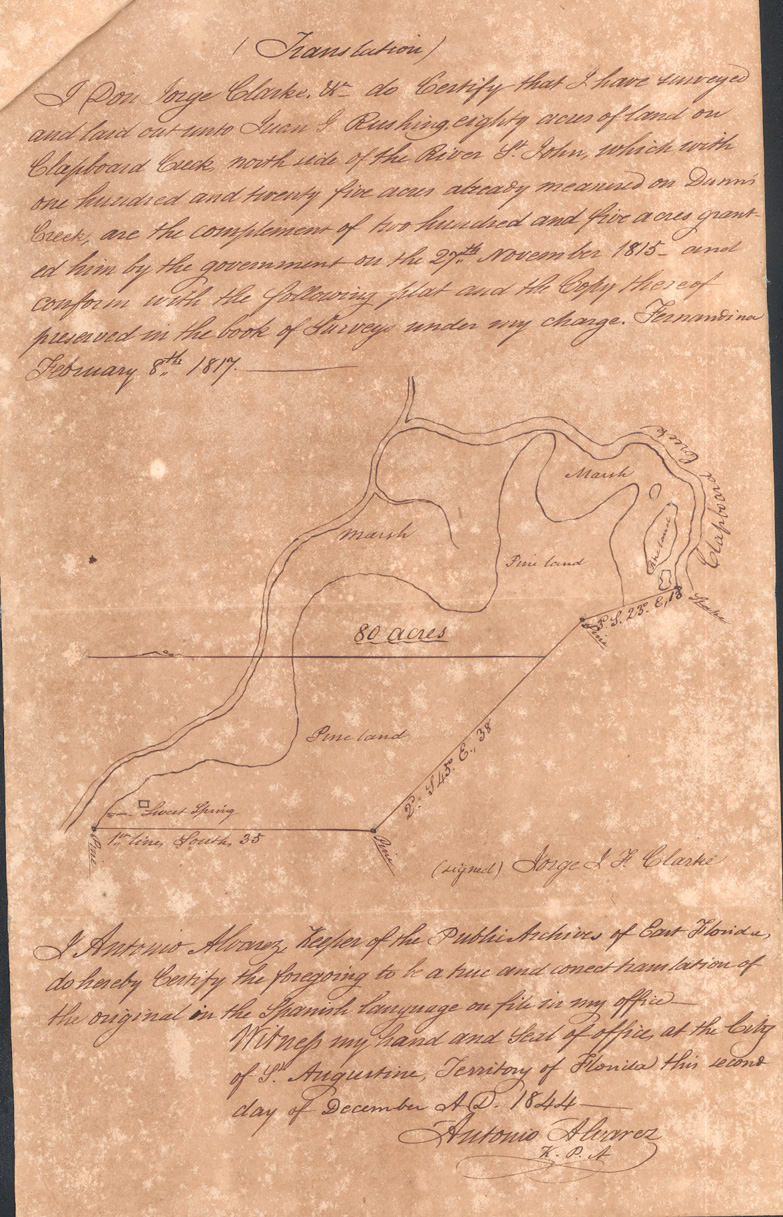 (Translation)
I Don Jorge Clarke, &ca do Certify that I have surveyed
and laid out unto Juan G Rushing, eighty acres of land on
Clapboard Creek, north side of the River St John, which with
one hundred and twenty five acres already measured on Dunn's
Creek, are the complement of two hundred and five acres grant-
ed him by the government on the 27th November 1815 - and
conform with the following plat and the Copy thereof
preserved in the book of Surveys under my charge. Fernandina
February 8th 1817.
Clapboard Creek
Marsh
Marsh
Pine land
Pineland
Stake
3d. S. 23° E, 18
Pine
80 acres
Pine land
2d. S 45° E., 38
Sweet Spring
1st line, South, 35
Pine
Pine
(signed) Jorge J. F. Clarke
I Antonio Alvarez, Keeper of the Public Archives of East Florida,
do hereby Certify the foregoing to be a true and correct translation of
the original in the Spanish language on file in my office
Witness my hand and Seal of office, at the City
of St. Augustine, Territory of Florida this second
day of December A.D. 1844
Antonio Alvarez
K. P. A